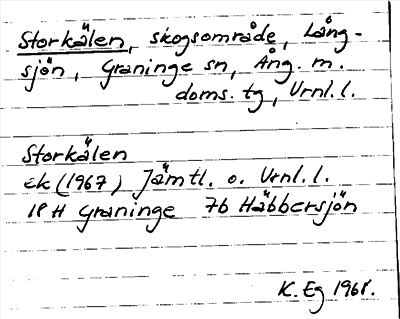 Storkälen, skogsområde, Lång-
sjön, Graninge sn, Ång. m.
doms. tg, Vrnl. l.
Storkälen
ek (1967) Jämtl. o. Vrnl. l.
18 H Graninge 7b Häbbersjön
K. Eg 1968.